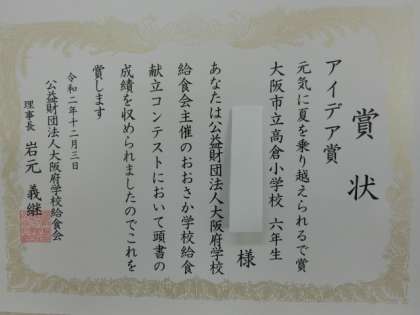 賞状
アイデア賞
元気に夏を乗り越えられるで賞
大阪市立高倉小学校 六年生
様
あなたは公益財団法人大阪府学校
給食会主催のおおさか学校給食
献立コンテストにおいて頭書の
成績を収められましたのでこれを
賞します
令和二年十二月三日
公益財団法人大阪府学校給食会
理事長 岩元 義継